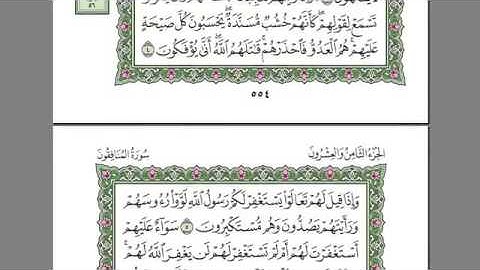 تَسْمَعْ لِقَوْلِهِمْ كَأَنَّهُمْ خُشُبٌ مُّسَنَّدَةٌ يَحْسَبُونَ كُلَّ صَيْحَةٍ
عَلَيْهِمْ هُمُ الْعَدُوُّ فَاحْذَرْهُمْ قَاتَلَهُمُ اللَّهُ أَنَّىٰ يُؤْفَكُونَ ٤
٥٥٤
الجُزْءُ الثَّامِنُ وَالعِشْرُونَ
سُورَةُ المُنَافِقُونَ
وَإِذَا قِيلَ لَهُمْ تَعَالَوْا يَسْتَغْفِرْ لَكُمْ رَسُولُ اللَّهِ لَوَّوْا رُءُوسَهُمْ
وَرَأَيْتَهُمْ يَصُدُّونَ وَهُم مُّسْتَكْبِرُونَ ٥ سَوَاءٌ عَلَيْهِمْ
أَسْتَغْفَرْتَ لَهُمْ أَمْ لَمْ تَسْتَغْفِرْ لَهُمْ لَن يَغْفِرَ اللَّهُ لَهُمْ